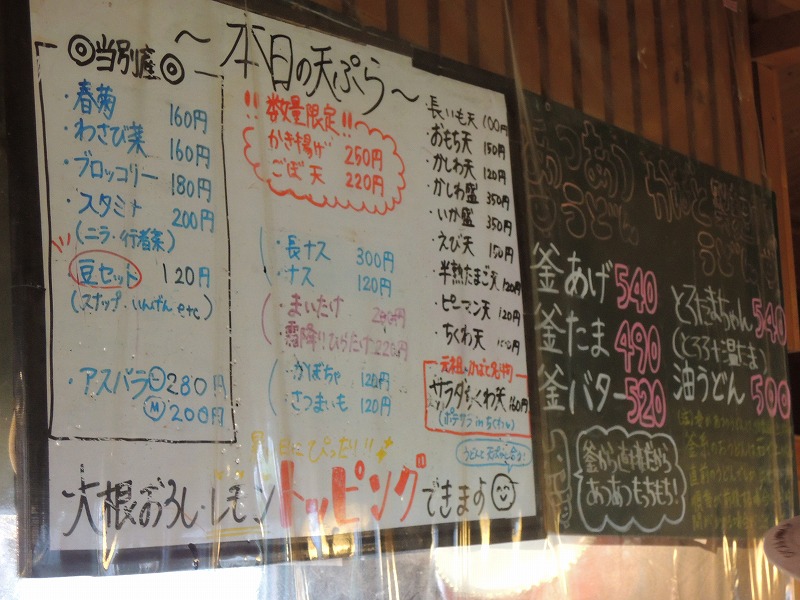 ～本日の天ぷら～
◎当別産◎
・春菊 160円
・わさび菜 160円
・ブロッコリー 180円
・スタミナ 200円
(ニラ・行者菜)
豆セット 120円
(スナップ・いんげん etc)
・アスパラ Ⓛ280円
Ⓜ200円
!!数量限定!!
かき揚げ 250円
ごぼ天 220円
・長ナス 300円
・ナス 120円
・まいたけ
・霜降りひらたけ 220円
・かぼちゃ 120円
・さつまいも 120円
・長いも天 100円
・おもち天 150円
・かしわ天 120円
・かしわ盛 350円
・いか盛 350円
・えび天 150円
・半熟たまご天 120円
・ピーマン天 120円
・ちくわ天
サラダちくわ天 160円
(ポテサラ in ちくわ)
にぴったり!!
大根おろし・レモン トッピング できます
うどん
釜あげ 540
釜たま 490
釜バター 520
とろたまちゃん 540
(とろろ+温たま)
油うどん 500
釜から直接だから
あつあつもちもち!